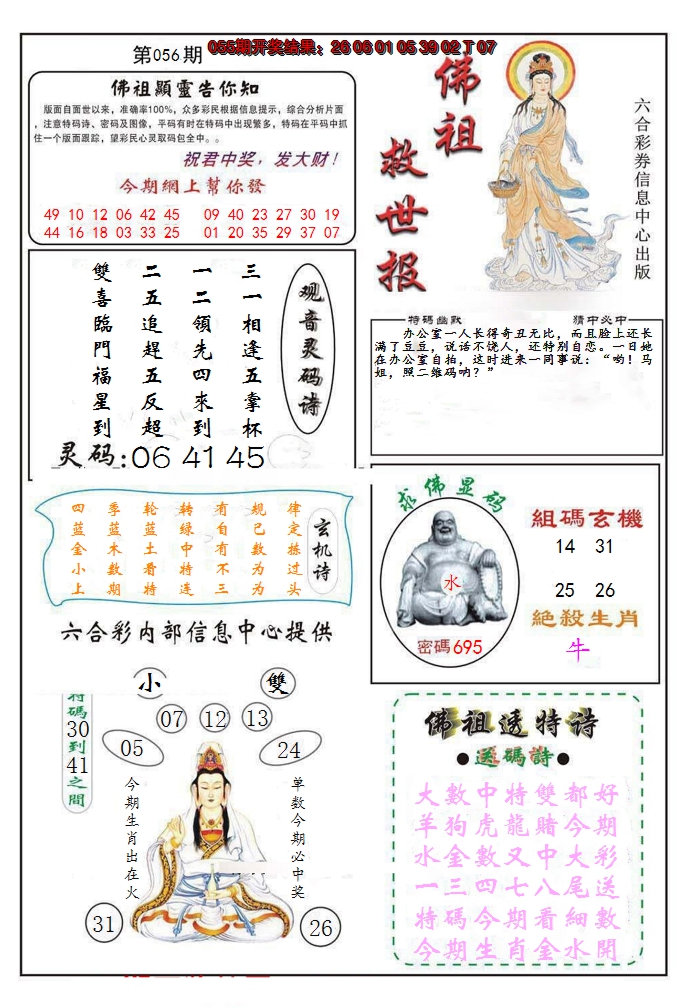 第056期
055期开奖结果：26 06 01 05 39 02 T 07
佛祖顯靈告你知
版面自面世以来，准确率100%，众多彩民根据信息提示，综合分析片面
，注意特码诗、密码及图像，平码有时在特码中出现繁多，特码在平码中抓
住一个版面跟踪，望彩民心灵取码包全中。。
祝君中奖，发大财！
今期網上幫你發
49 10 12 06 42 45 09 40 23 27 30 19
44 16 18 03 33 25 01 20 35 29 37 07
佛祖
救世报
六合彩券信息中心出版
观音灵码诗
三一相逢五掌杯
一二領先四來到
二五追趕五反超
雙喜臨門福星到
灵码:06 41 45
特碼幽默
猜中必中
办公室一人长得奇丑无比，而且脸上还长
满了豆豆，说话不饶人，还特别自恋。一日她
在办公室自拍，这时进来一同事说：“哟！马
姐，照二维码呐？”
玄机诗
四季轮转有规律
蓝蓝蓝绿自已定
金木土中有数拣
小数看特不为过
上期特连三为头
六合彩内部信息中心提供
求佛显码
水
密碼695
組碼玄機
14 31
25 26
絶殺生肖
牛
小
雙
特碼30到41之間
07
12
13
05
24
今期生肖出在火
单数今期必中奖
31
26
佛祖透特诗
●送碼詩●
大數中特雙都好
羊狗虎龍賭今期
水金數又中大彩
一三四七八尾送
特碼今期看細數
今期生肖金水開